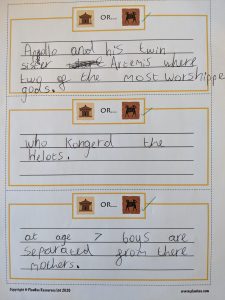 OR...
Apollo and his twin
sister Artemis where
two of the most worshippe
gods.
OR...
who kongerd the
Helots.
OR...
at age 7 boys are
separated from there
mothers.
Copyright © PlanBee Resources Ltd 2020
www.planbee.com